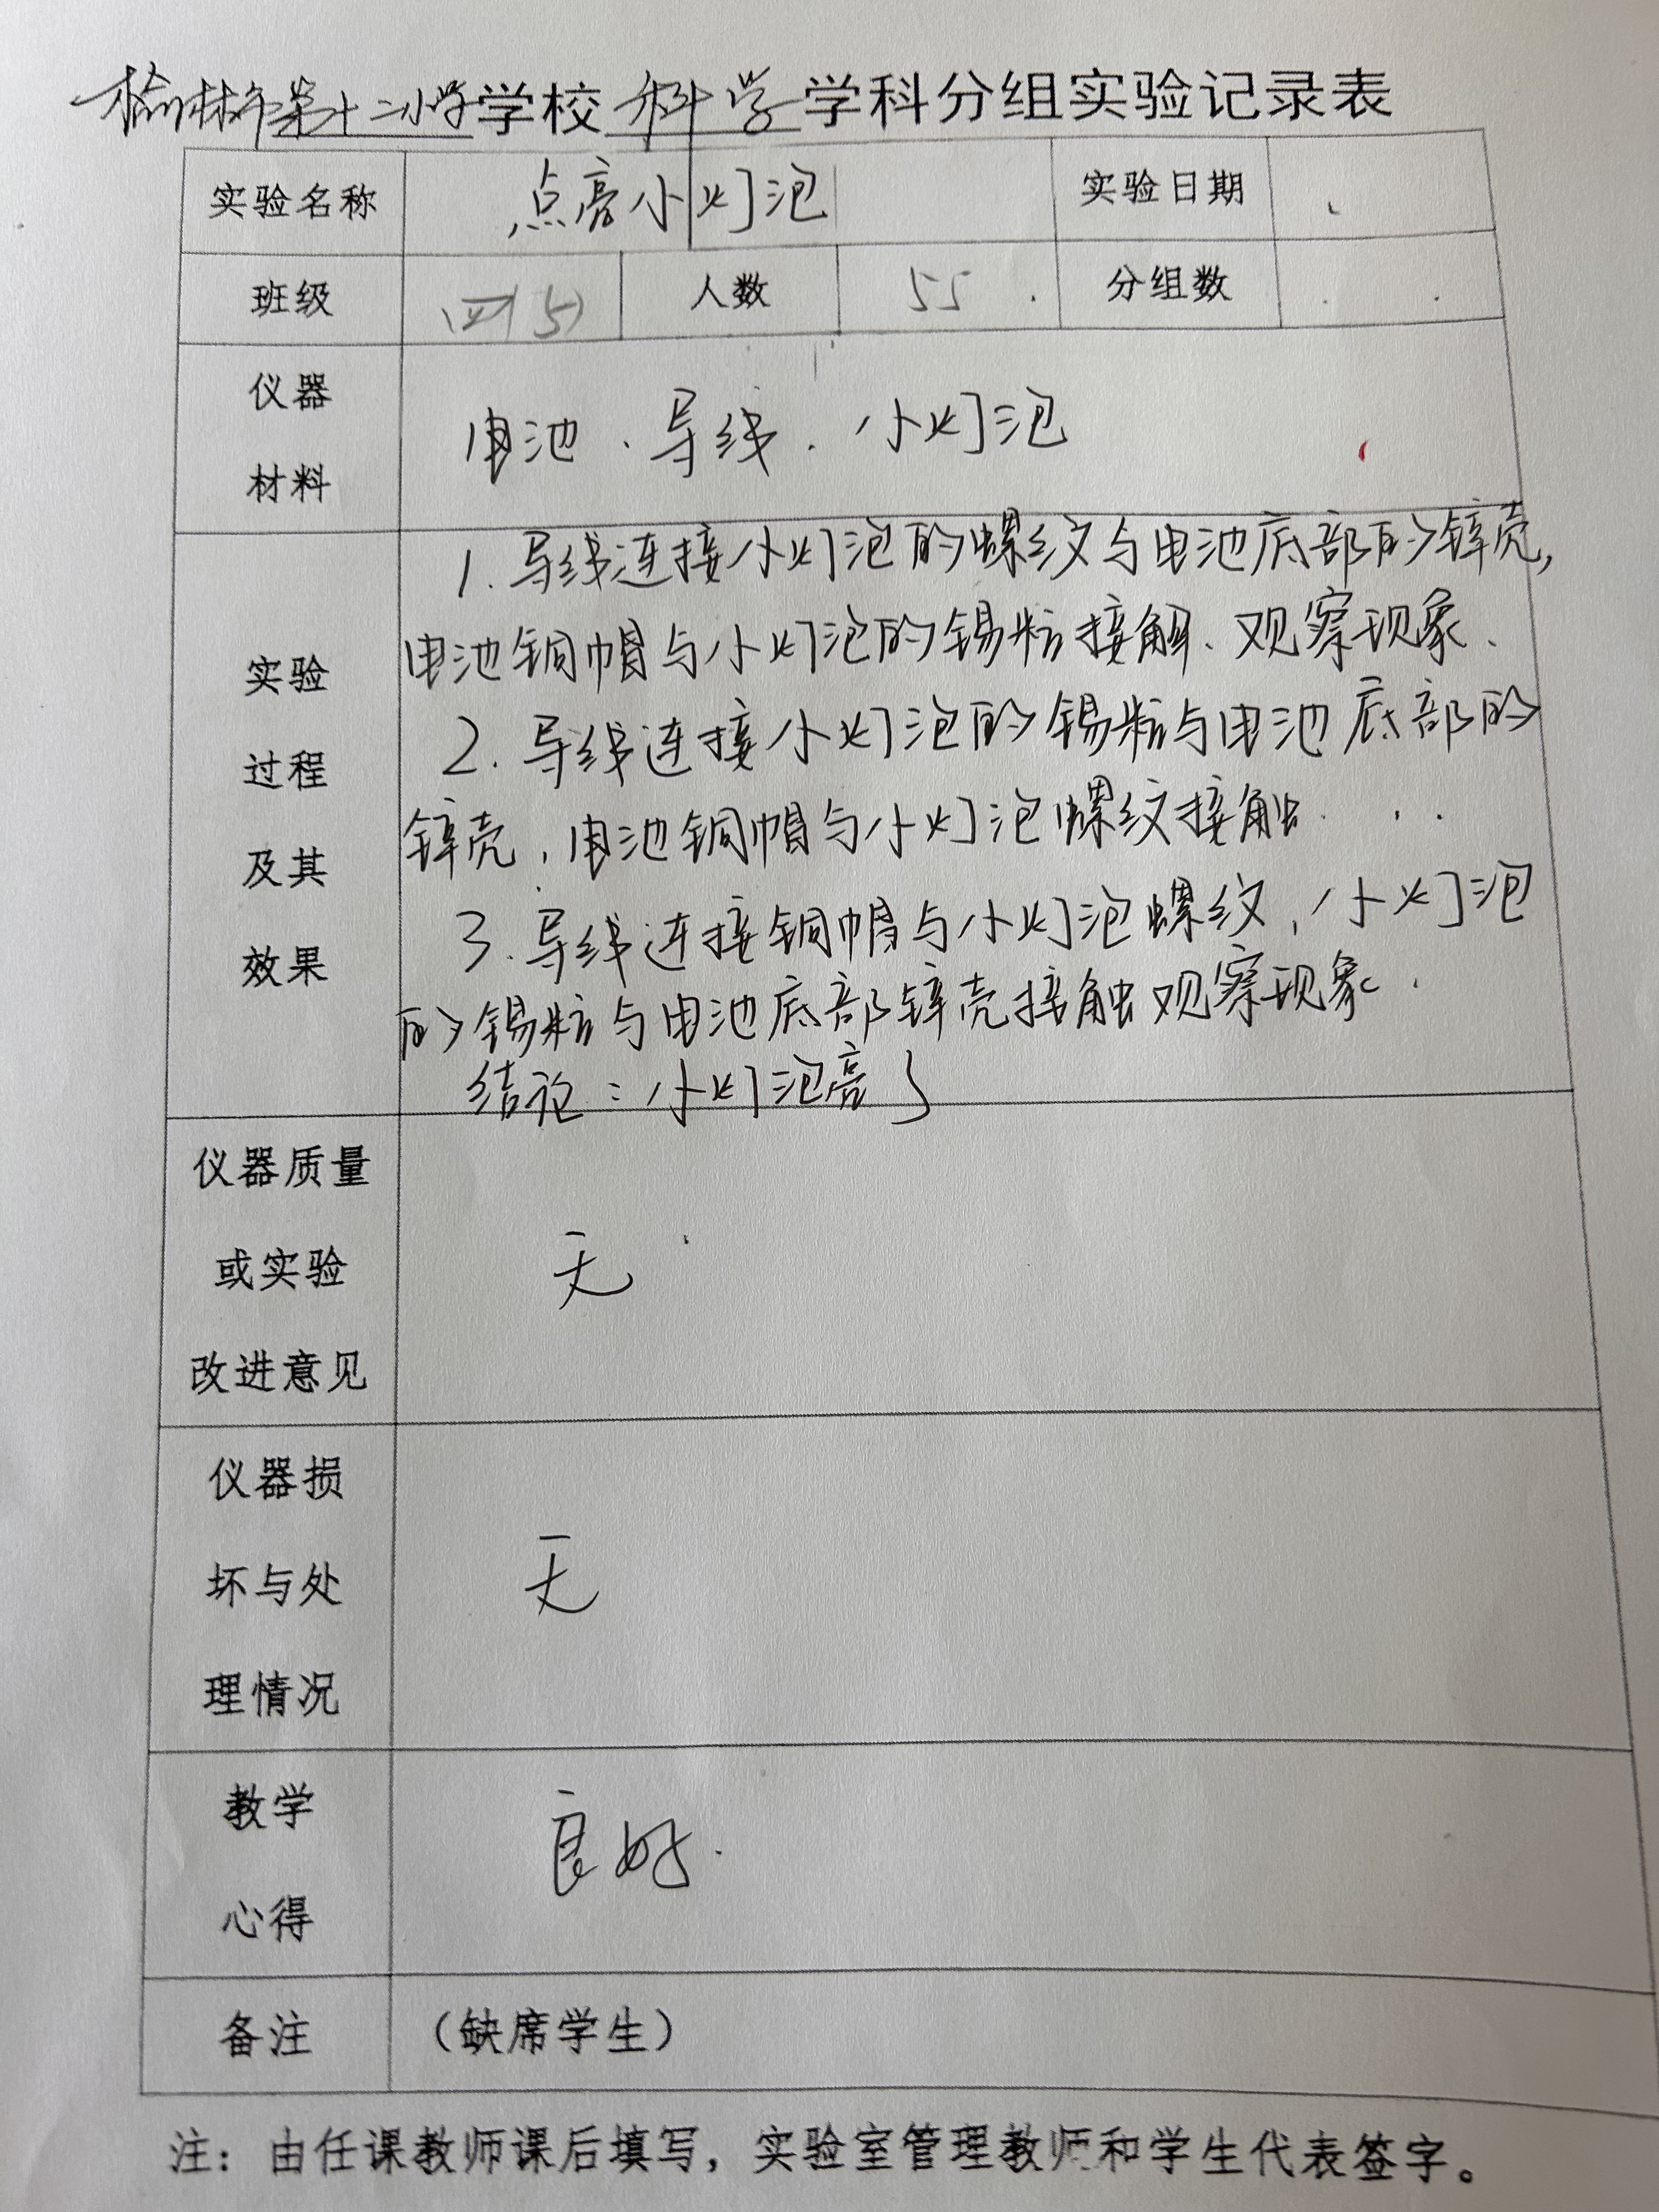 榆林市第十二小学学校科学学科分组实验记录表
实验名称 点亮小灯泡 实验日期
班级 (四5) 人数 55 分组数
仪器
材料
电池、导线、小灯泡
实验
过程
及其
效果
1.导线连接小灯泡的螺纹与电池底部的锌壳,
电池铜帽与小灯泡的锡粒接解、观察现象、
2.导线连接小灯泡的锡粒与电池底部的
锌壳,电池铜帽与小灯泡螺纹接触.
3.导线连接铜帽与小灯泡螺纹,小灯泡
的锡粒与电池底部锌壳接触观察现象.
结论:小灯泡亮了
仪器质量
或实验
改进意见
无
仪器损
坏与处
理情况
无
教学
心得
良好.
备注 (缺席学生)
注:由任课教师课后填写,实验室管理教师和学生代表签字。